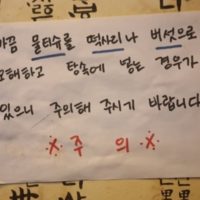 가끔 물티슈를 떡사리나 버섯으로
오해하고 탕속에 넣는 경우가
있으니 주의해 주시기 바랍니다
※ 주 의 ※